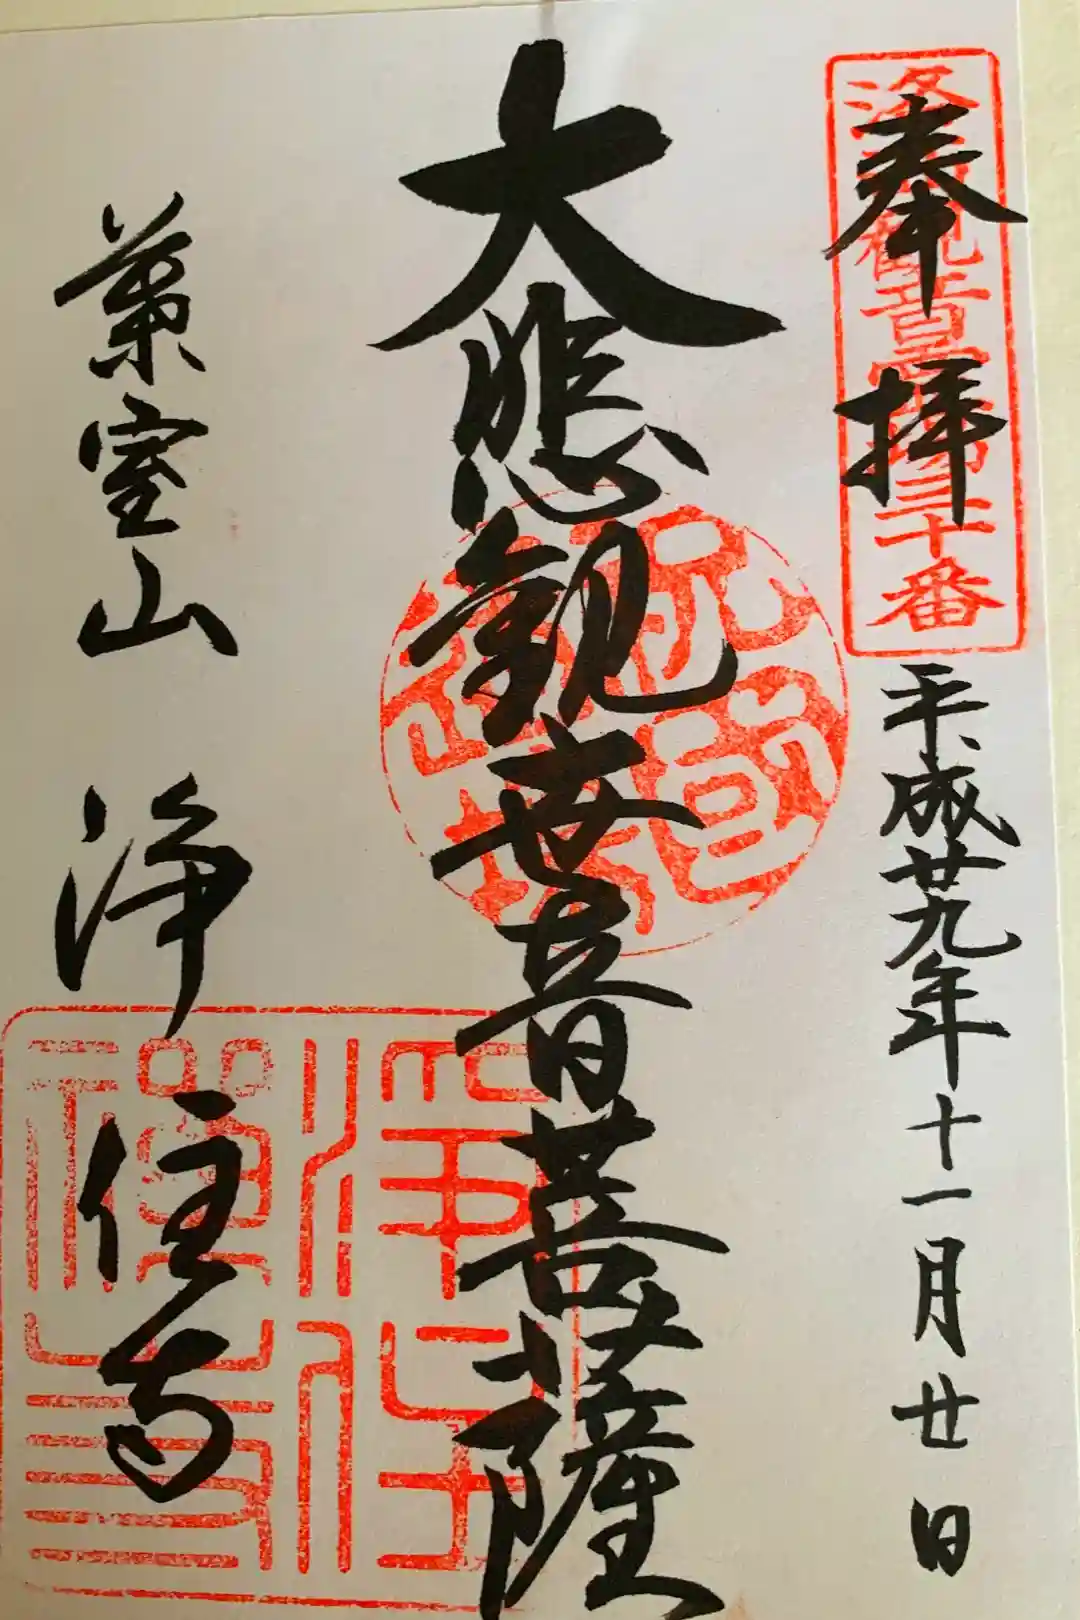 奉拝
洛西観音霊場三十番
平成廿九年十一月廿日
大悲観世音菩薩
葉室山 浄住寺